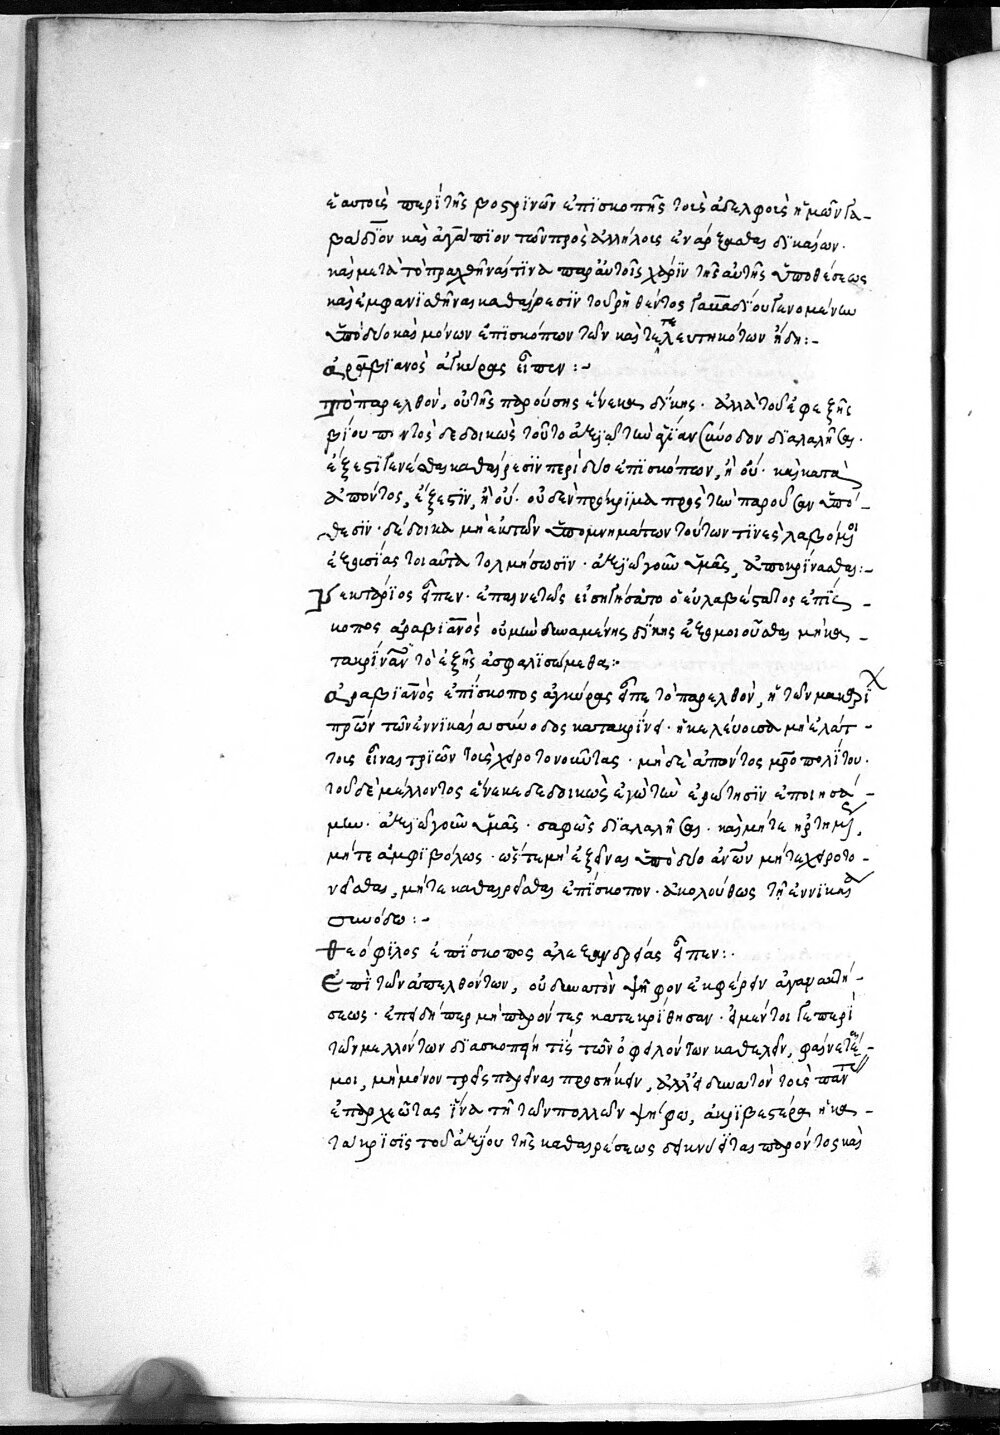 ἑαυτοῖς περὶ τῆς βοστρινῶν ἐπισκοπῆς τοῖς ἀδελφοῖς ἡμῶν γα-
βαδίον καὶ ἀγάπιον τῶν πρὸς ἀλλήλοις ἐνάρξασθαι δικαίων.
καὶ μετὰ τὸ πραχθῆναι τινὰ παρ' αὐτοῖς χάριν τῆς αὐτῆς ὑποθέσεως
καὶ ἐμφανισθῆναι καθαίρεσιν τοῦ ῥηθέντος γαβαδίου γενομένην
ὑπὸ δύο καὶ μόνων ἐπισκόπων τῶν καὶ τετελευτηκότων ἤδη:-
ἀραβιανὸς ἀγκύρας εἶπεν:-
τὸ παρελθὸν, οὐ τῆς παρούσης ἕνεκα δίκης. ἀλλὰ τοῦ ἐφεξῆς
βίου παντὸς δεδοικὼς τοῦτο ἀξιῶ τὴν ἁγίαν σύνοδον διαλαλῆσαι.
ἔξεστι γενέσθαι καθαίρεσιν περὶ δύο ἐπισκόπων, ἢ οὔ. καὶ κατὰ
ἀπόντος, ἔξεστιν, ἢ οὔ. οὐδὲν πρόκριμα πρὸς τὴν παροῦσαν ὑπό-
θεσιν. δέδοικα μὴ ἐκ τῶν ὑπομνημάτων τούτων τινὲς λαβόμενοι
ἐξουσίας τοιαῦτα τολμήσωσιν. ἀξιῶ γοῦν ὑμᾶς, ἀποκρίνασθαι:-
νεκτάριος εἶπεν. ἐπαινετῶς εἰσηγήσατο ὁ εὐλαβέστατος ἐπίσ-
κοπος ἀραβιανός οὐ μὴν δυναμένης δίκης ἐξ ἑτοίμου οὖσθαι μὴ κα-
τακρίναντ τὸ ἑξῆς ἀσφαλισώμεθα:-
ἀραβιανὸς ἐπίσκοπος ἀγκύρας εἶπε τὸ παρελθὸν, ἡ τῶν μακαρί
πρων τῶν ἐν νικαίᾳ σύνοδος κατακρίνει. ἡ κελεύουσα μὴ ἐλάτ-
τοις εἶναι τριῶν τοὺς χειροτονοῦντας. μὴ δὲ ἀπόντος μροπολίτου.
τοῦ δὲ μέλλοντος ἕνεκα δεδοικὼς ἐγὼ τὴν ἐρώτησιν ἐποιησά-
μην. ἀξιῶ γοῦν ὑμᾶς. σαφῶς διαλαλῆσαι. καὶ μήτε ἠρτημ,
μήτε ἀμφιβόλως. ὥς τε μὴ ἐξεῖναι ὑπὸ δύο ἀνων μήτε χειροτο-
νεῖσθαι, μήτε καθαιρεῖσθαι ἐπίσκοπον. ἀκολούθως τῇ ἐν νικαίᾳ
συνόδῳ:-
θεόφιλος ἐπίσκοπος ἀλεξανδρείας εἶπεν:
ἐπὶ τῶν ἀπελθόντων, οὐ δυνατὸν ψῆφον ἐκφέρειν ἀγανακτή-
σεως. ἐπειδήπερ μὴ παρόντες κατεκρίθησαν. εἰ μέντοι γε περὶ
τῶν μελλόντων διασκοπῇ τίς τῶν ὀφειλόντων καθελεῖν, φαίνεταί
μοι, μὴ μόνον τρεῖς παρεῖναι προσήκειν, ἀλλ' εἰ δυνατὸν τοὺς παντ
ἐπαρχεῶτας ἵνα τῇ τῶν πολλῶν ψήφῳ, ἀκριβεστέρα ἡ κα-
τάκρισις τοῦ ἀξίου τῆς καθαιρέσεως δεικνύηται παρόντος καὶ